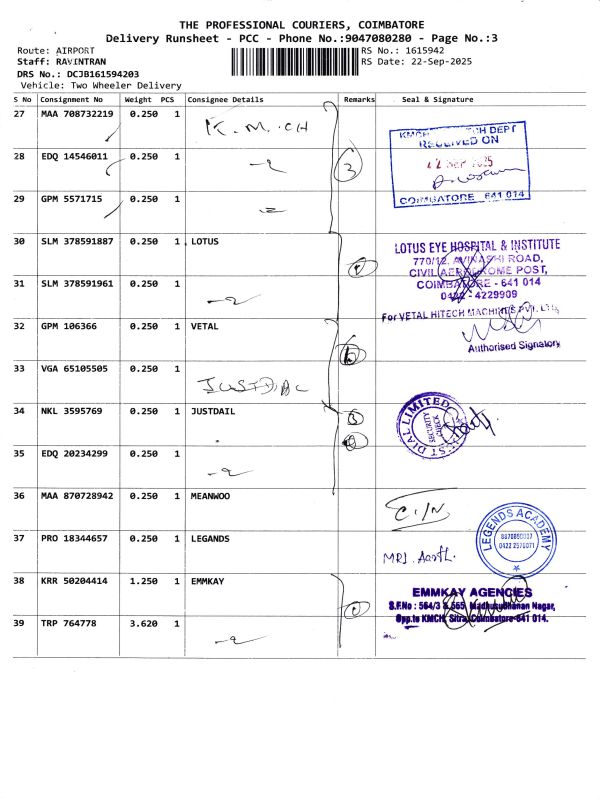 THE PROFESSIONAL COURIERS, COIMBATORE
Delivery Runsheet - PCC - Phone No.:9047080280 - Page No.:3
Route: AIRPORT
RS No.: 1615942
Staff: RAVINTRAN
RS Date: 22-Sep-2025
DRS No.: DCJB161594203
Vehicle: Two Wheeler Delivery
S No Consignment No Weight PCS Consignee Details Remarks Seal & Signature
27 MAA 708732219 0.250 1 K.M.CH
28 EDQ 14546011 0.250 1 3
29 GPM 5571715 0.250 1
RECEIVED ON
22 SEP 2025
COIMBATORE 641 014
30 SLM 378591887 0.250 1 LOTUS
31 SLM 378591961 0.250 1
LOTUS EYE HOSPITAL & INSTITUTE
770/12, AVINASHI ROAD,
CIVIL AERODROME POST,
COIMBATORE - 641 014
0422 - 4229909
32 GPM 106366 0.250 1 VETAL
For VETAL HITECH MACHINES PVT. LTD.
Authorised Signatory
33 VGA 65105505 0.250 1 JUSTDIAL
34 NKL 3595769 0.250 1 JUSTDAIL
35 EDQ 20234299 0.250 1
JUST DIAL LIMITED
SECURITY
CHECK
36 MAA 870728942 0.250 1 MEANWOO
37 PRO 18344657 0.250 1 LEGANDS
LEGENDS ACADEMY
38 KRR 50204414 1.250 1 EMMKAY
39 TRP 764778 3.620 1
EMMKAY AGENCIES
S.F.No : 564/3 & 565, Madhusudhanan Nagar,
Opp.to KMCH, Sitra, Coimbatore-641 014.